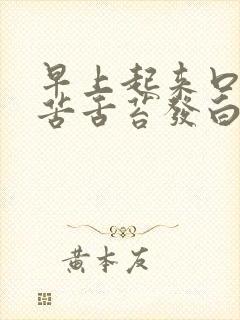 早上起来口
苦舌苔發白
黄本友